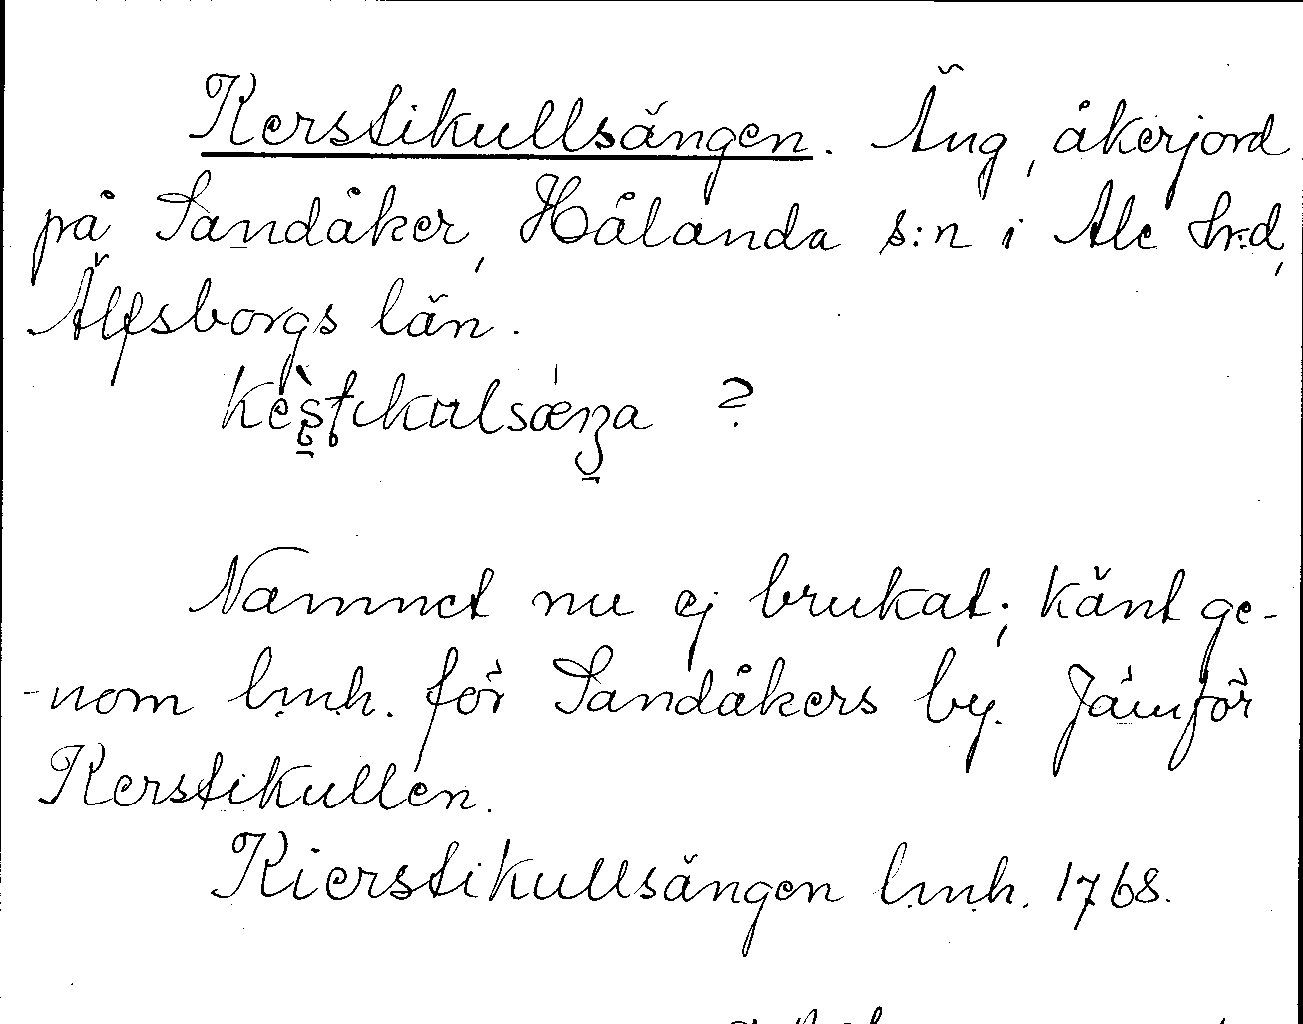 Kerstikullsängen. Äng, åkerjord
på Sandåker, Hålanda s:n i Ale hrd,
Älfsborgs län.
?
Namnet nu ej brukat; känt ge-
-nom l.m.h. för Sandåkers by. Jämför
Kerstikullen.
Kierstikullsängen l.m.h. 1768.